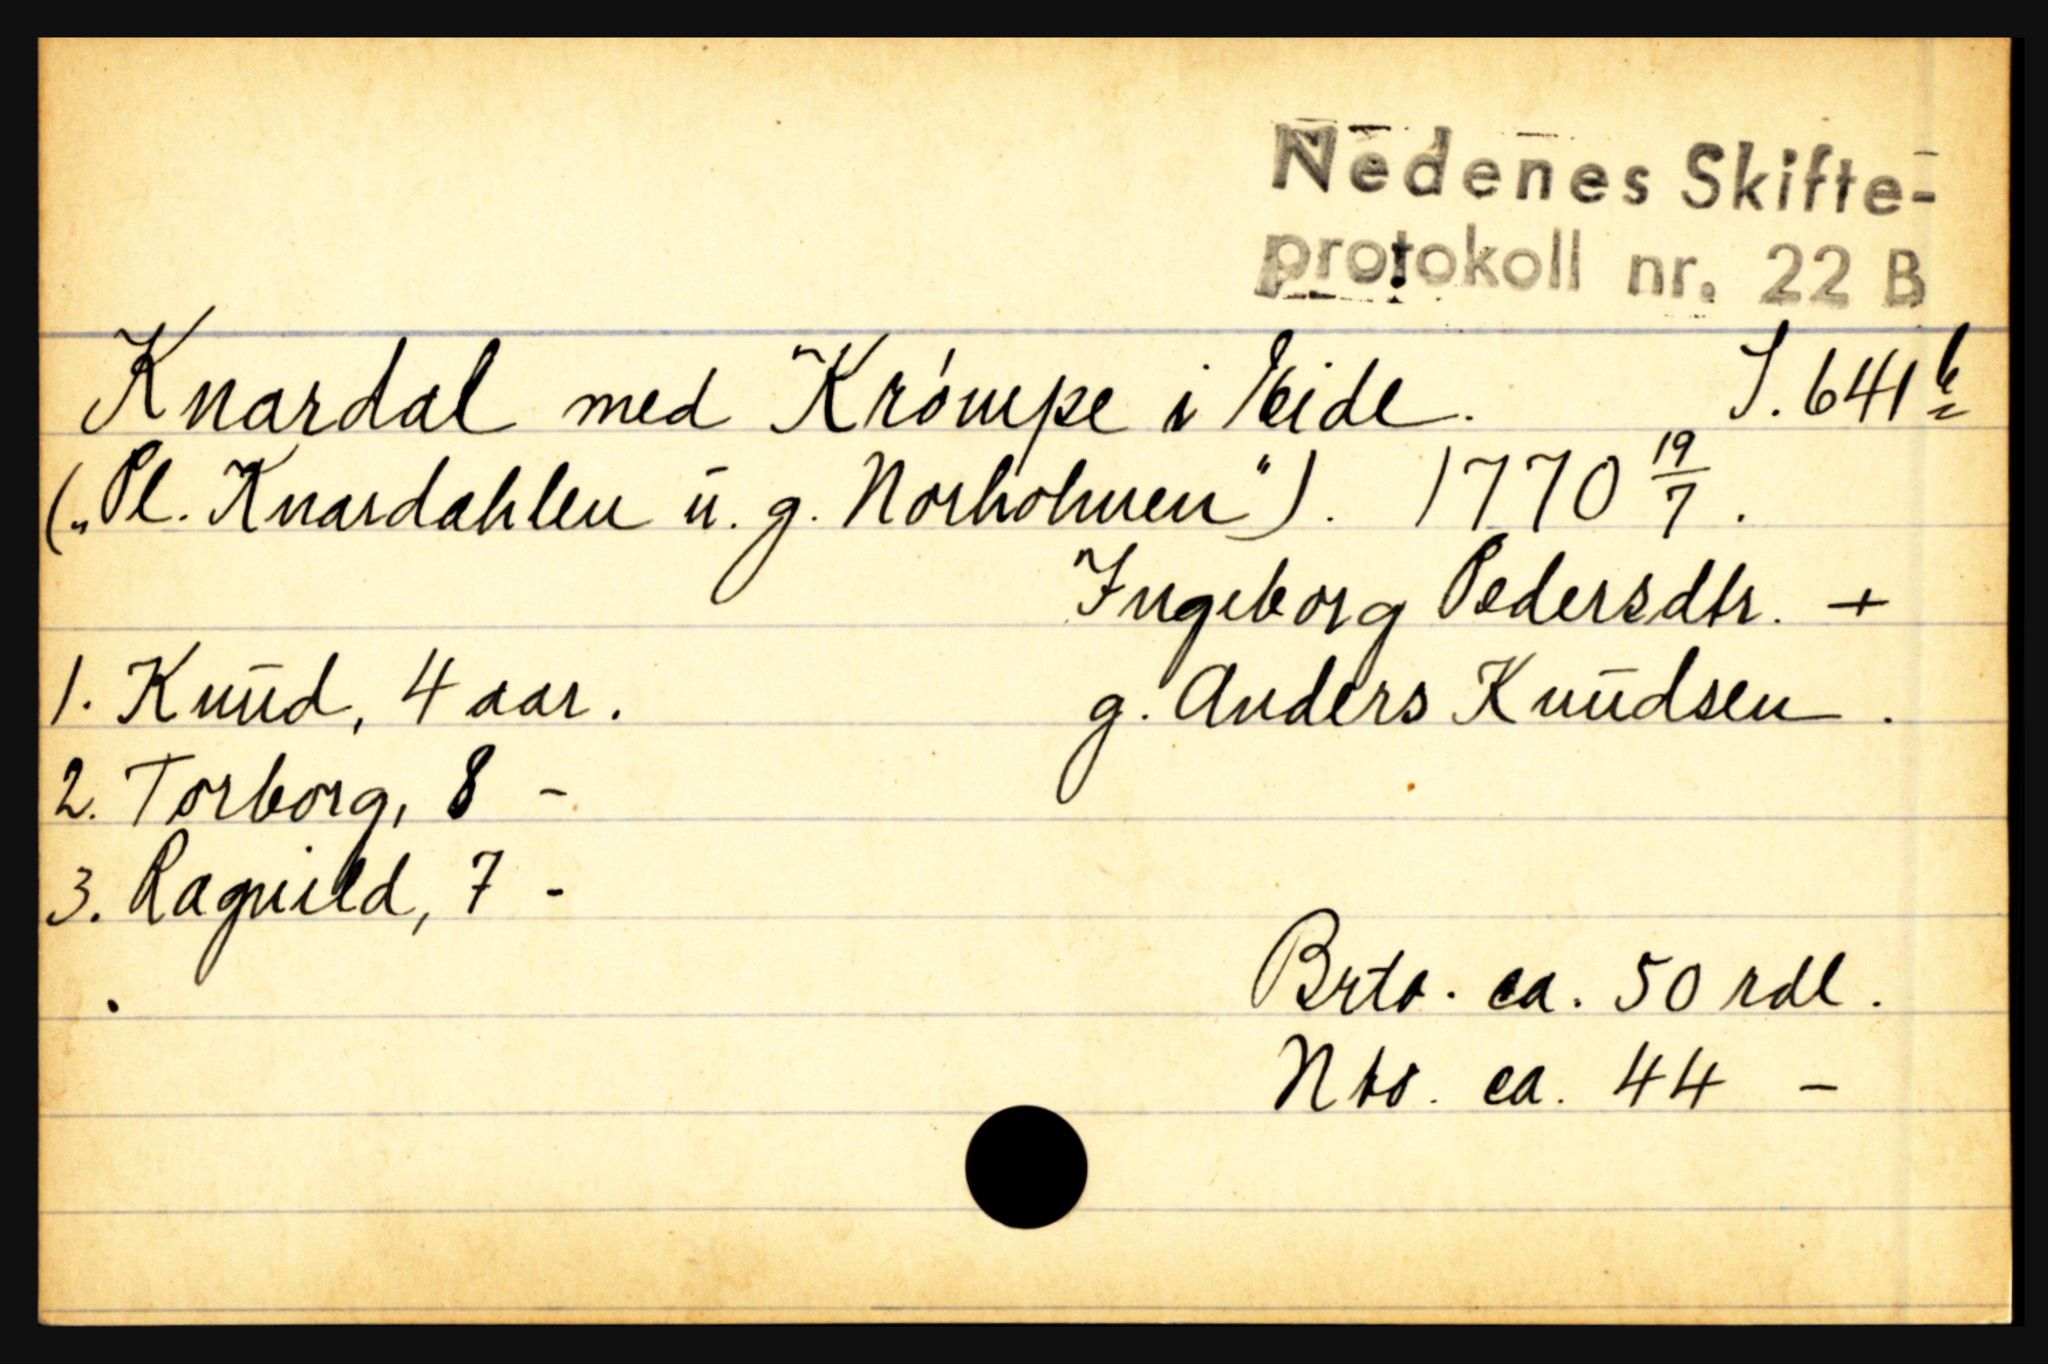 Nedenes Skifte-
protokoll nr. 22 B
Knardal med Krómpe i Eide. S. 641 b
(„Pl. Knardahlen ū. g. Norholmen"). 1770 19/7.
Ingeborg Pedersdtr. +
1. Knūd, 4 aar. g. Anders Knūdsen.
2. Torborg, 8 -
3. Ragnild, 7 -
Brto. ca. 50 rdl.
Nto. ca. 44 -